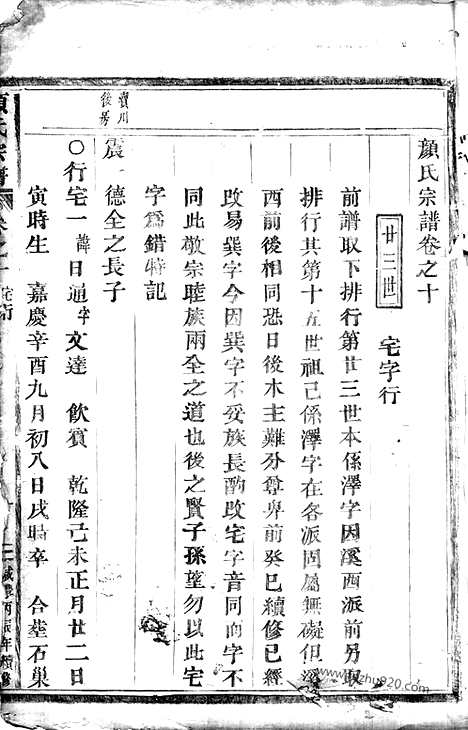 顏氏宗譜卷之十
廿三世
宅字行
前譜取下排行第廿三世本係澤字因溪西派前另取
排行其第十五世祖已係澤字在各派固屬無礙但溪
西前後相同恐日後木主難分尊卑前癸巳續修已經
改易巽字今因巽字不妥族長酌改宅字音同而字不
同此敬宗睦族兩全之道也後之賢子孫望勿以此宅
字爲錯特記
震一德全之長子
後房
○行宅一諱日通字文達 飲賓 乾隆己未正月廿二日
寅時生 嘉慶辛酉九月初八日戌時卒 合塟石巢
氏宗譜
咸豐丙辰年續修
www.zhu920.com